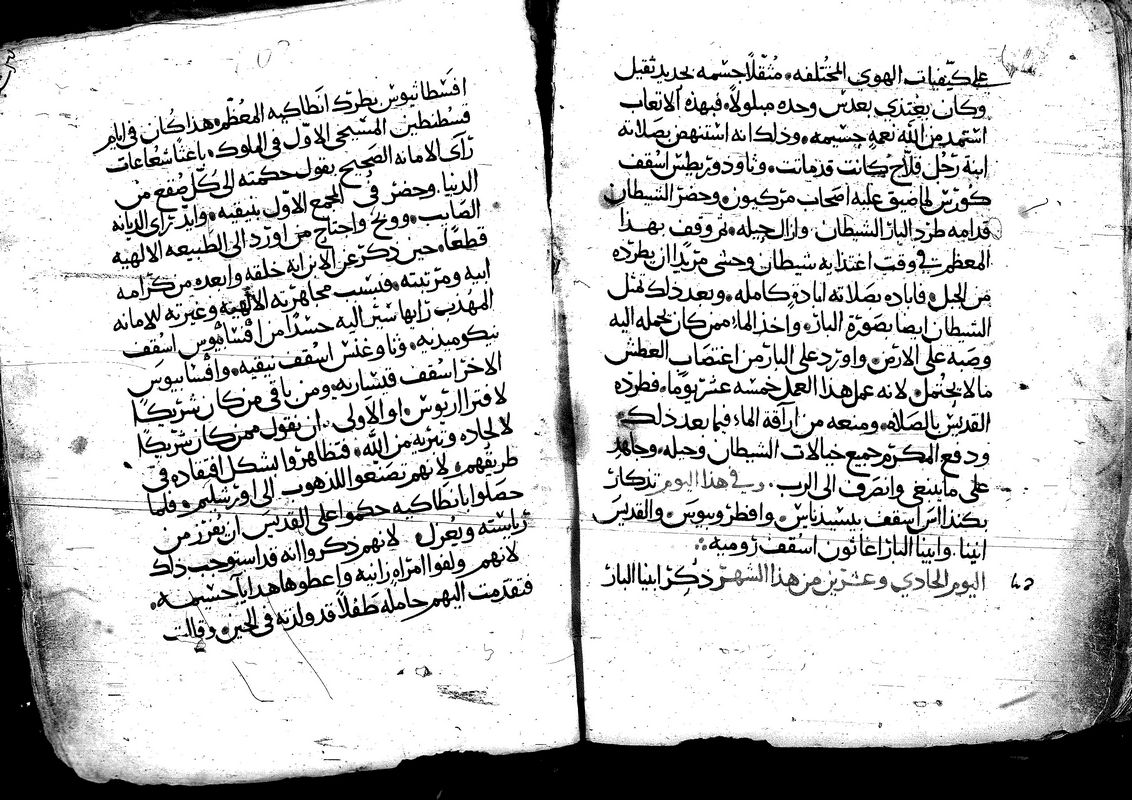 على كيفيات الهوي المختلفه. مثقلًا جسمه بحديد ثقيل
وكان يغتدي بعدس وحده مبلولًا. فبهذه الاتعاب
استمد من الله نعمه جسيمه. وذلك انه استنهض بصلاته
ابنة رجل فلاح كانت قد ماتت. وثاودوريطس اسقف
كورس لما ضيق عليه اصحاب مركيون. وحضر الشيطان
قدامه طرد البار الشيطان. وازال حيله. ثم وقف بهدا
المعظم في وقت اغتذايه شيطان وحشى مريدًا ان يطرده
من الجبل. فاباده بصلاته ابادة كامله. وبعد ذلك تمثل
الشيطان ايضا بصورة الباز. واخذ الماء ممن كان يحمله اليه
وصبه على الارض. واورد على البار من اغتصاب العطش
ما لا يحتمل. لانه عمل هذا العمل خمسه عشر يومًا. فطرده
القديس بالصلاه. ومنعه من اراقة الماء فيما بعد دلك
ودفع المكرم جميع خيالات الشيطان وحيله. وجاهد
على ما ينبغي وانصرف الى الرب. وفي هذا اليوم تدكار
اسقف وافطروبيوس. والقديس
ابينا. وابينا البار اغاثون اسقف رومية.
اليوم الحادي وعشرين من هذا الشهر ذكر ابينا البار
افسطاتيوس بطرك انطاكيه المعظم. هذا كان في ايام
قسطنطين المسيحي الاول في الملوك. باعثا شعاعات
راى الامانه الصحيح بقول حكمته الى كل صقع من
الدنيا. وحضر في المجمع الاول بنيقيه. وايد راى الديانه
الصايب. ووبخ واحتاج من اورد الى الطبيعه الالهيه
قطعًا. حين ذكر عن الابن انه خلقه وابعده من كرامه
ابيه ومرتبته. فبسبب مجاهرته الالهيه وغيرته للامانه
المهدب رايها شير اليه حسدًا من افسابيوس اسقف
نيكوميديه. وثاوغنس اسقف نيقيه. وافسابيوس
الاخر اسقف قيساريه. ومن باقي من كان شريكا
لافترا اريوس. او الاولى. ان نقول ممن كان شريكا
لالحاده ونفريه من الله. فتظاهروا بشكل افتقاده في
طريقهم. لانهم تصنعوا اللدهوب الى اورشليم. فلما
حصلوا بانطاكيه حكموا على القديس ان يفرز من
رياسته ويعزل. لانهم ذكروا انه قد استوجب ذلك
لانهم ولقوا امراه زانيه واعطوها هدايا جسيمه.
فتقدمت اليهم حامله طفلًا قد ولدته في الحين. وقالت